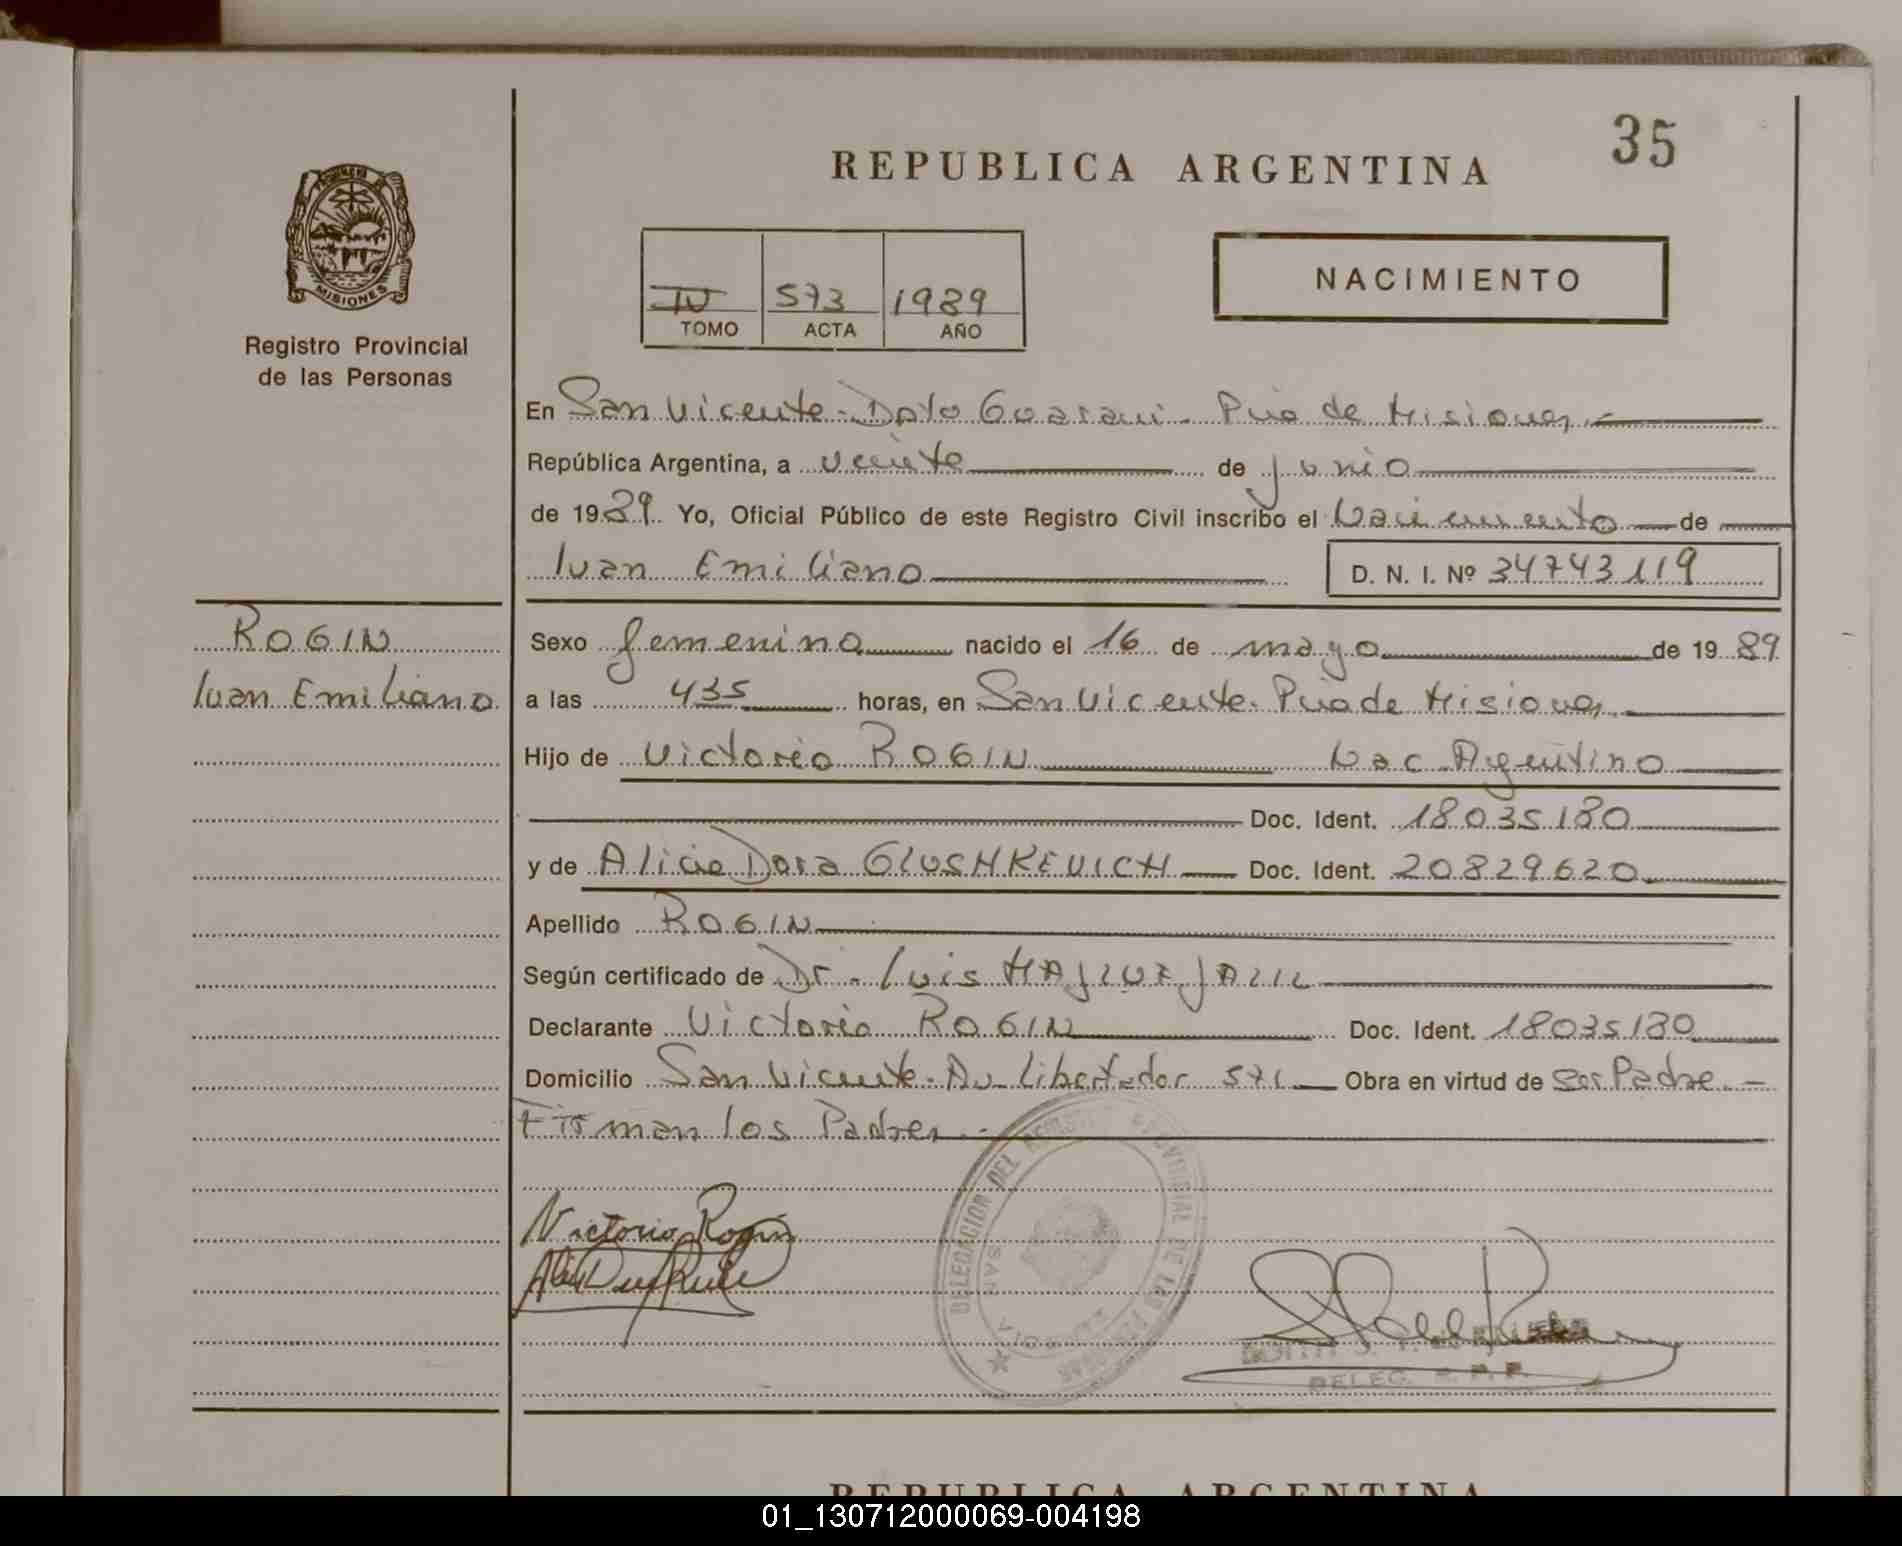 35
REPUBLICA ARGENTINA
PROVINCIA DE
MISIONES
Registro Provincial
de las Personas
IV 573 1989
TOMO ACTA AÑO
NACIMIENTO
En San Vicente - Dpto Guarani - Pvia de Misiones.-
República Argentina, a veinte de junio
de 1989. Yo, Oficial Público de este Registro Civil inscribo el Nacimiento de
Ivan Emiliano D. N. I. Nº 34743119
ROGIN
Ivan Emiliano
Sexo femenino nacido el 16 de mayo de 19 89
a las 435 horas, en San Vicente. Pvia de Misiones.
Hijo de Victorio ROGIN Nac. Argentino
Doc. Ident. 18035180
y de Alicia Dora GLUSHKEVICH Doc. Ident. 20829620
Apellido ROGIN
Según certificado de Dr. Luis JALIL
Declarante Victorio ROGIN Doc. Ident. 18035180
Domicilio San Vicente. Av. Libertador 571 Obra en virtud de ser Padre.-
Firman los Padres.-
Victorio Rogin
DELEGACION DEL REGISTRO PROVINCIAL DE LAS PERSONAS
SAN VICENTE
DELEG. R. P. P.
REPUBLICA ARGENTINA
01_130712000069-004198